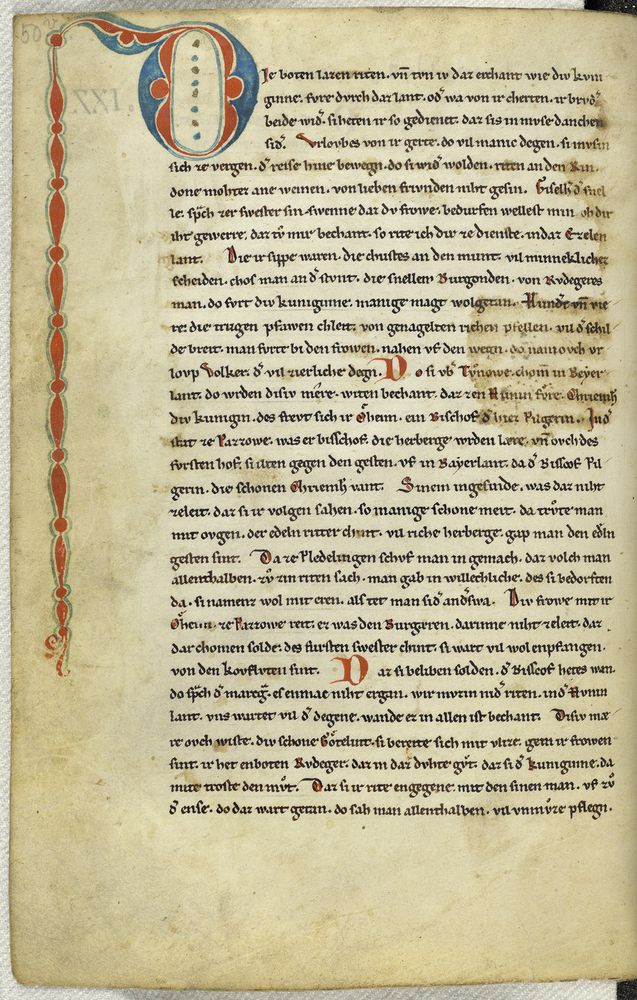 50v
XXI.
Die boten lazen riten. vn̄ tvn iv daz erchant wie div kvni
ginne. fvre dvrch daz lant. od͛ wa von ir cherten. ir brvd͛
beide wid͛. si heten ir so gedienet. daz sis in mvse danchen
sid͛. Vrloubes von ir gerte. do vil manic degen. si mvsin
sich ze
d͛ reise hine bewegn. do si wid͛ wolden. riten an den Rin.
done mohtez ane weinen. von lieben frivnden niht gesin. Giselh͛ d͛ snel
le. sp̄ch zer swester sin. swenne daz dv frowe. bedurfen wellest min. ob dir
iht gewerre. daz tv̊ mir bechant. so rite ich dir ze dienste. in daz Ezelen
lant. Die ir sippe waren. die chustes an den munt. vil minneklichez
scheiden. chos man an d͛ stvnt. die snellem Burgonden. von Rvdegeres
man. do fvrt div kuniginne. manige magt wolgetan. Hund͛t vn̄ vie
re. die trugen pfawen chleit. von genagelten richen pfellen. vil d͛ schil
de breit. man fvrte bi den frowen. nahen vf den wegn. do nam ovch vr
lovp Volker. d͛ vil zierliche degn. Do si vb͛ Tv̊nowe. chom̄ in Beyer
lant. do wrden disiv mere. witen bechant. daz zen Hunin fv̊re. Chriemh̄
div kunigin. des frevt sich ir O̊heim. ein Bischof d͛ hiez Pilgerin. In d͛
stat ze Pazzowe. was er bisschof. die herberge wrden lere. vn̄ ovch des
fvrsten hof. si ilten gegen den gesten. vf in Bayerlant. da d͛ Bisscof Pil
gerin. die schonen Chriemh̄ vant. Sinem ingesinde. was daz niht
zeleit. daz si ir volgen sahen. so manige schone meit. da trv̊te man
mit ovgen. der edeln ritter chint. vil riche herberge. gap man den edeln
gesten sint. Da ze Pledelingen schvf man in gemach. daz volch man
allenthalben. zv̊ zin riten sach. man gab in willechliche. des si bedorften
da. si namenz wol mit eren. als tet man sid͛ and͛swa. Div frowe mit ir
O̊heim. ze Pazzowe reit. ez was den Burgeren. darinne niht zeleit. daz
dar chomen solde. des fursten swester chint. si wart vil wol enpfangen.
von den kovflvten sint. Daz si beliben solden. d͛ Bisscof hetes wan.
do sp̄ch d͛ mareg͛. es enmac niht ergan. wir mvzin nid͛ riten. in d͛ Hvnin
lant. vns wartet vil d͛ degene. wande ez in allen ist bechant. Disiv mæ
re ovch wiste. div schone Gotelint. si bereite sich mit vlize. gein ir frowen
sint. ir het enboten Rvdeger. daz in daz dvhte gv̊t. daz si d͛ kuniginne. da
mite troste den mv̊t. Daz si ir rite engegene. mit den sinen man. vf zv̊
d͛ ense. do daz wart getan. do sah man allenthalben. vil vnmv̊ze pflegn.